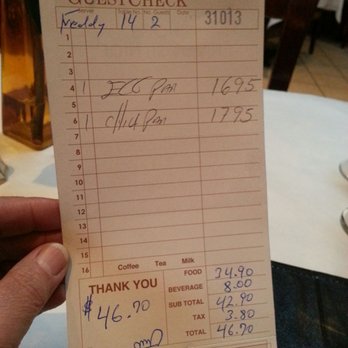 GUESTCHECK
Server Table No. Guests Date
Freddy 14 2 31013
1
3
4 1 EGG Pan 1695
5
6 1 Chick Pan 1795
7
8
9
10
11
12
13
14
15
16
Coffee Tea Milk
THANK YOU
$46.70
FOOD 34.90
BEVERAGE 8.00
SUB TOTAL 42.90
TAX 3.80
TOTAL 46.70